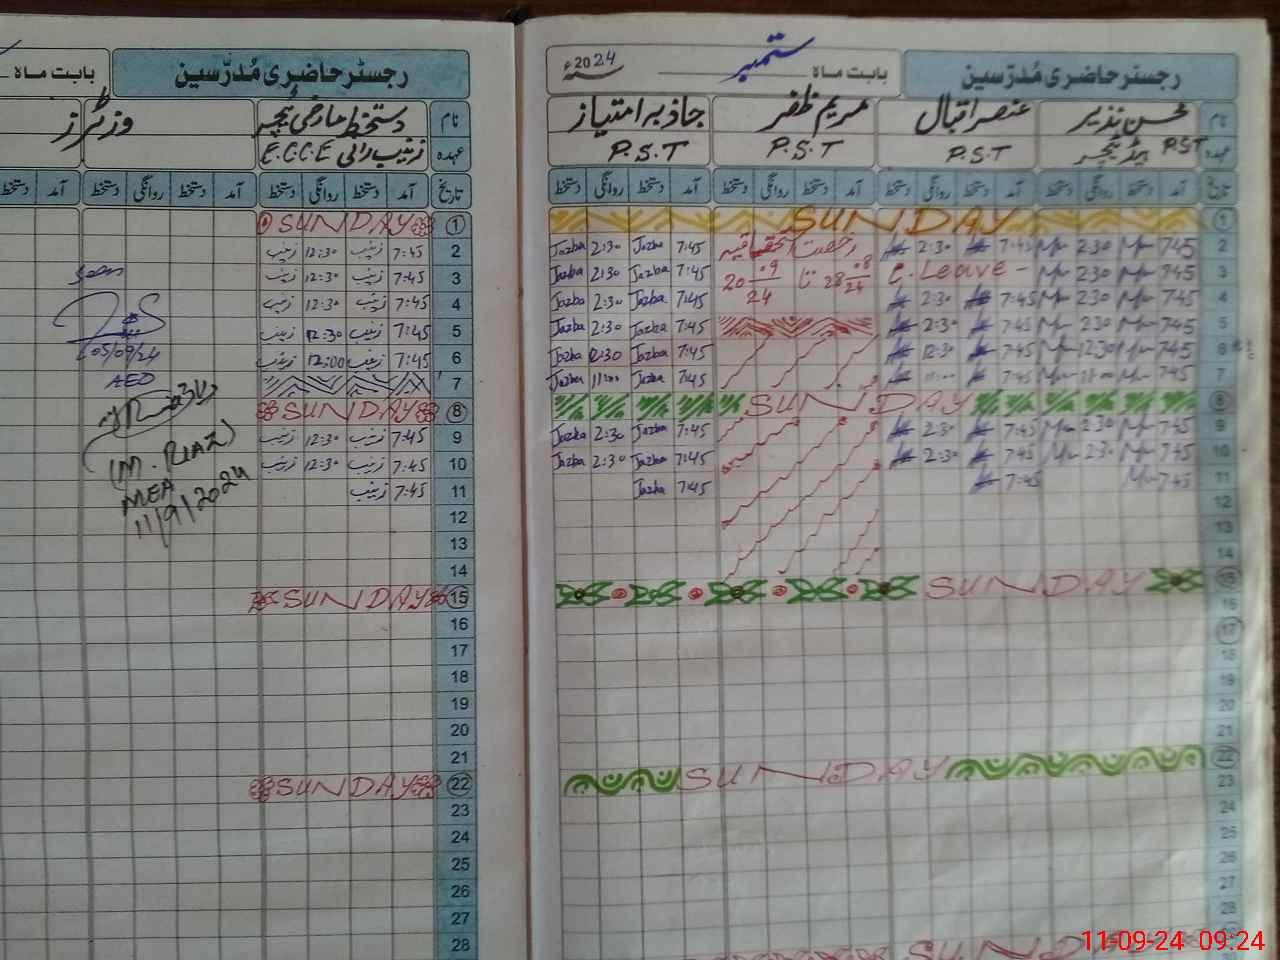 رجسٹر حاضری مُدرّسین
بابت ماہ ستمبر سنہ 2024ء
نام محسن نذیر عنصر اقبال مریم ظفر جاذبہ امتیاز
عہدہ P.S.T ہیڈ ٹیچر P.S.T P.S.T P.S.T
تاریخ آمد دستخط روانگی دستخط آمد دستخط روانگی دستخط آمد دستخط روانگی دستخط آمد دستخط روانگی دستخط
1 SUNDAY
2 7:45 2:30 7:45 2:30 رخصت 7:45 Jazba 2:30 Jazba
3 7:45 2:30 C. Leave 28 08/24 تا 20 09/24 7:45 Jazba 2:30 Jazba
4 7:45 2:30 7:45 2:30 7:45 Jazba 2:30 Jazba
5 7:45 2:30 7:45 2:30 7:45 Jazba 2:30 Jazba
6 7:45 12:30 7:45 12:30 7:45 Jazba 12:30 Jazba
7 7:45 11:00 7:45 11:00 7:45 Jazba 11:00 Jazba
8 SUNDAY
9 7:45 2:30 7:45 2:30 7:45 Jazba 2:30 Jazba
10 7:45 2:30 7:45 2:30 7:45 Jazba 2:30 Jazba
11 7:45 7:45 7:45 Jazba
12
13
14
15 SUNDAY
16
17
18
19
20
21
22 SUNDAY
23
24
25
26
27
28
SUNDAY
30
رجسٹر حاضری مُدرّسین
بابت ماہ
نام دستخط عارضی ٹیچر وزٹرز
عہدہ زینب رانی E.C.C.E
تاریخ آمد دستخط روانگی دستخط آمد دستخط روانگی دستخط آمد دستخط
1 SUNDAY
2 7:45 زینب 12:30 زینب
3 7:45 زینب 12:30 زینب
4 7:45 زینب 12:30 زینب
5 7:45 زینب 12:30 زینب
6 7:45 زینب 12:00 زینب
7
8 SUNDAY
9 7:45 زینب 12:30 زینب
10 7:45 زینب 12:30 زینب
11 7:45 زینب
12
13
14
15 SUNDAY
16
17
18
19
20
21
22 SUNDAY
23
24
25
26
27
28
Seen
05/09/24
AEO
(M. RIAZ)
MEA
11/9/2024
11-09-24 09:24